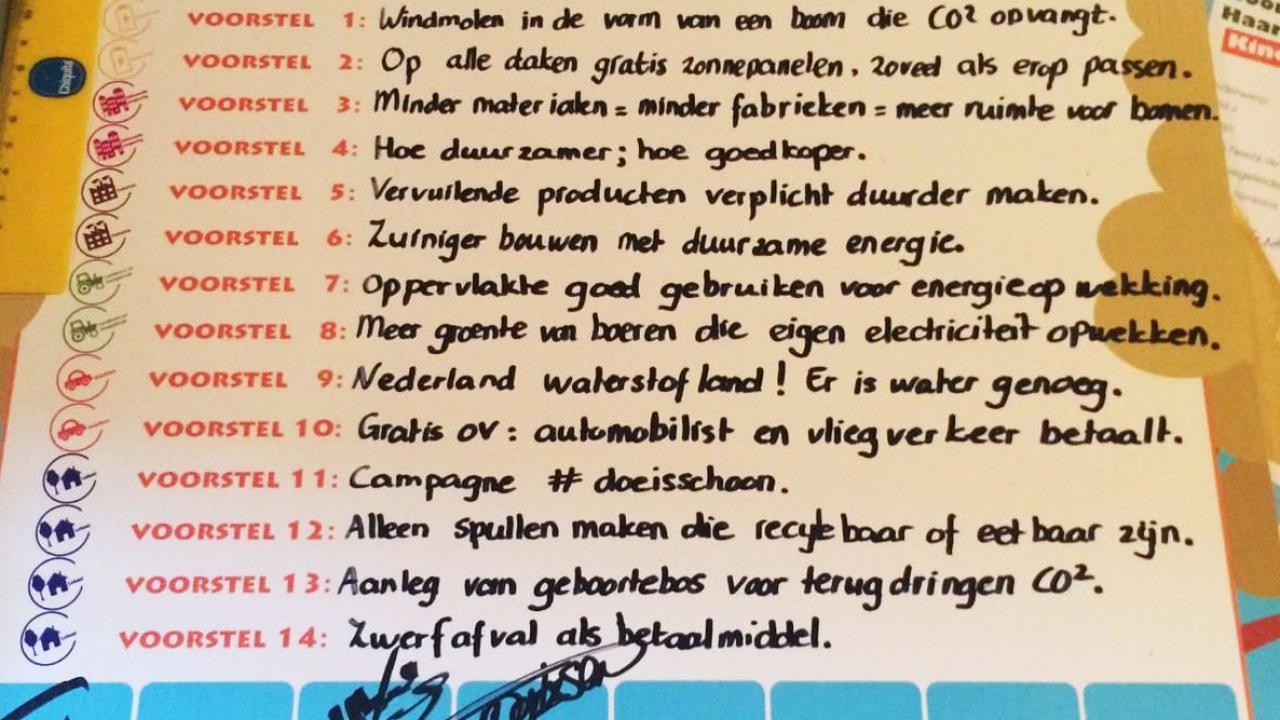 VOORSTEL 1: Windmolen in de vorm van een boom die CO² opvangt.
VOORSTEL 2: Op alle daken gratis zonnepanelen, zoveel als erop passen.
VOORSTEL 3: Minder materialen = minder fabrieken = meer ruimte voor bomen.
VOORSTEL 4: Hoe duurzamer; hoe goedkoper.
VOORSTEL 5: Vervuilende producten verplicht duurder maken.
VOORSTEL 6: Zuiniger bouwen met duurzame energie.
VOORSTEL 7: Oppervlakte goed gebruiken voor energieopwekking.
VOORSTEL 8: Meer groente van boeren die eigen electriciteit opwekken.
VOORSTEL 9: Nederland waterstofland! Er is water genoeg.
VOORSTEL 10: Gratis OV: automobilist en vliegverkeer betaalt.
VOORSTEL 11: Campagne # doeisschoon.
VOORSTEL 12: Alleen spullen maken die recyclebaar of eetbaar zijn.
VOORSTEL 13: Aanleg van geboortebos voor terugdringen CO².
VOORSTEL 14: Zwerfafval als betaalmiddel.
Chiquita
Haar
Kin